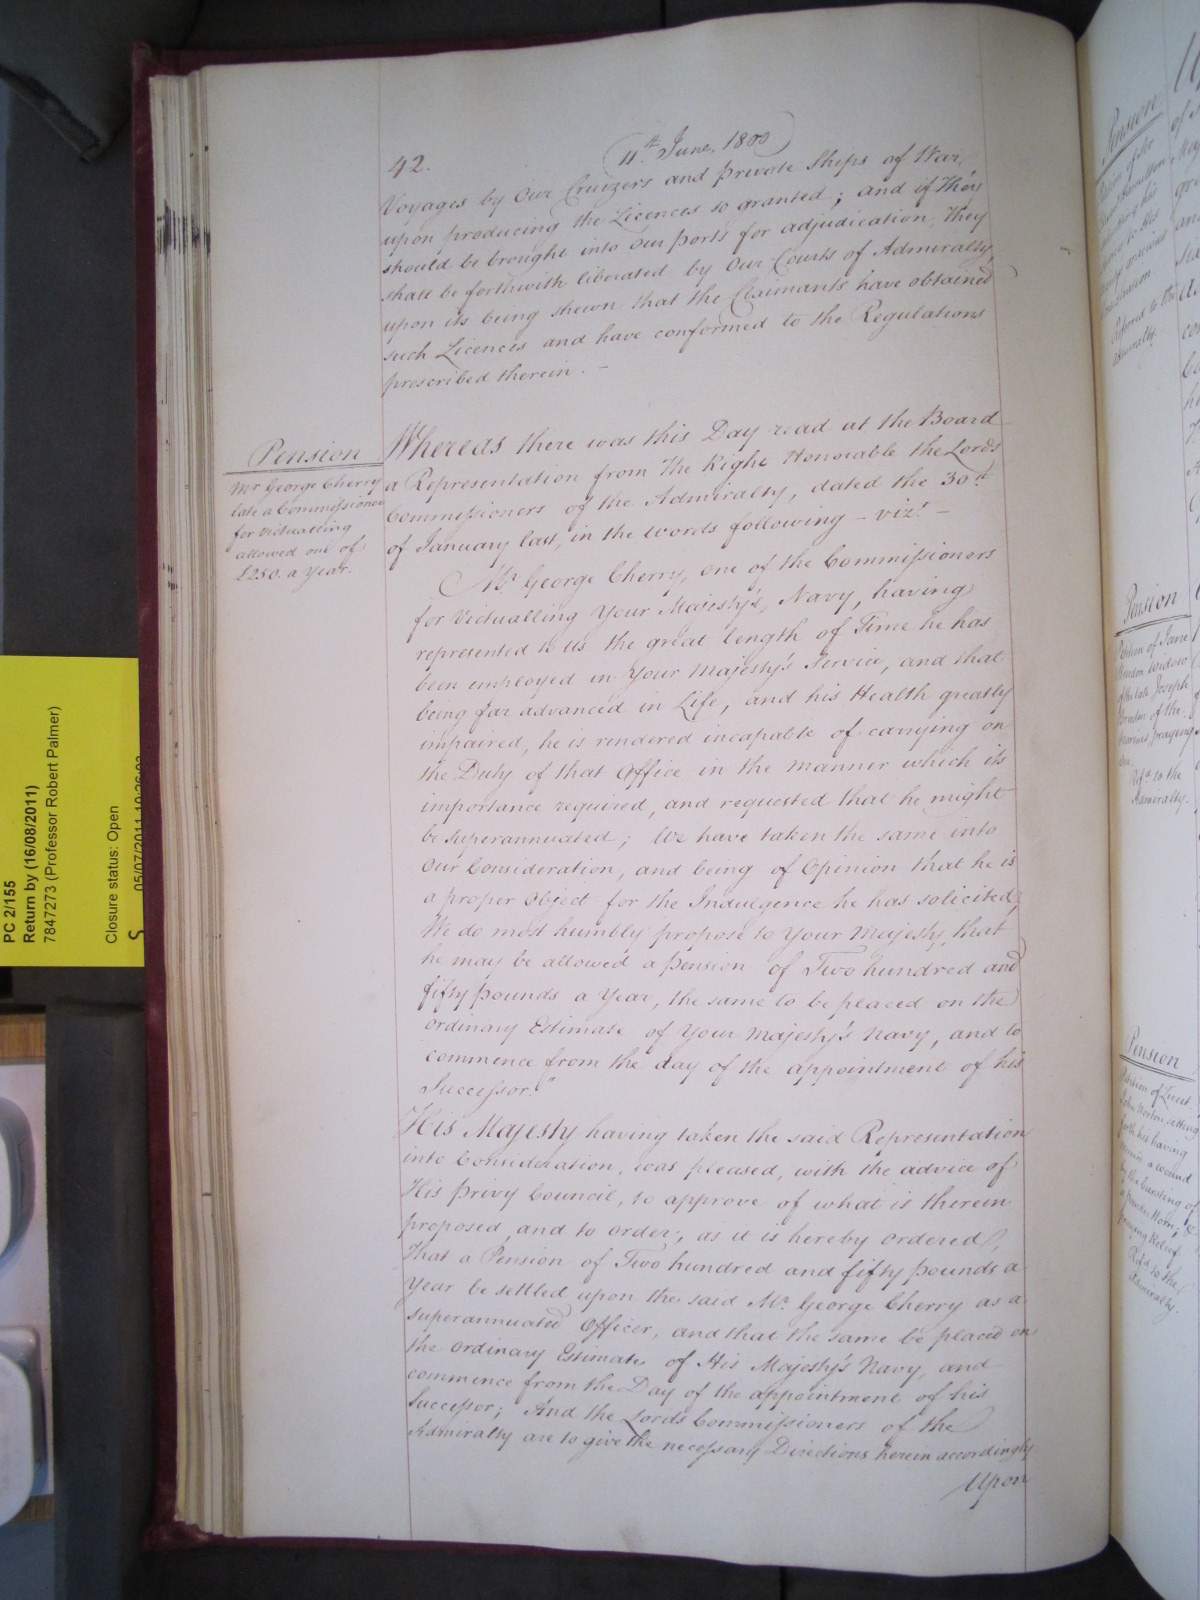 42.
11th June, 1800
Voyages by Our Cruizers and private Ships of War,
upon producing the Licences so granted; and if They
should be brought into our ports for adjudication, They
shall be forthwith liberated by Our Courts of Admiralty,
upon its being shewn that the Claimants have obtained
such Licences and have conformed to the Regulations
prescribed therein. —
Pension
Mr George Cherry
late a Commissioner
for Victualling
allowed one of
£250. a Year.
Whereas there was this Day read at the Board
a Representation from The Right Honorable the Lords
Commissioners of the Admiralty, dated the 30th
of January last, in the words following — vizt. —
Mr. George Cherry, one of the Commissioners
for Victualling Your Majesty's, Navy, having
represented to us the great length of Time he has
been employed in Your Majesty's Service, and that
being far advanced in Life, and his Health greatly
impaired, he is rendered incapable of carrying on
the Duty of that Office in the manner which its
importance required, and requested that he might
be superannuated; We have taken the same into
Our Consideration, and being of Opinion that he is
a proper Object for the Indulgence he has solicited,
We do most humbly propose to Your Majesty, that
he may be allowed a Pension of Two hundred and
fifty pounds a Year, the same to be placed on the
ordinary Estimate of Your Majesty's Navy, and to
commence from the day of the appointment of his
Successor."
His Majesty having taken the said Representation
into Consideration, was pleased, with the advice of
His Privy Council, to approve of what is therein
proposed, and to order, as it is hereby ordered,
That a Pension of Two hundred and fifty pounds a
Year be settled upon the said Mr. George Cherry as a
superannuated Officer, and that the same be placed on
the ordinary Estimate of His Majesty's Navy, and
commence from the Day of the appointment of his
Successor; And the Lords Commissioners of the
Admiralty are to give the necessary Directions herein accordingly.
Upon
PC 2/155
Return by (16/08/2011)
7847273 (Professor Robert Palmer)
Closure status: Open
05/07/2011
S
Pension
Pension
Petition of Jane
widow
of the late Joseph
of the
Marines praying
Refd. to the
Admiralty.
Pension
Petition of Lieut
John Norton setting
forth his having
a wound
by the bursting of
a powder Horn; &
praying Relief
Refd. to the
Admiralty.